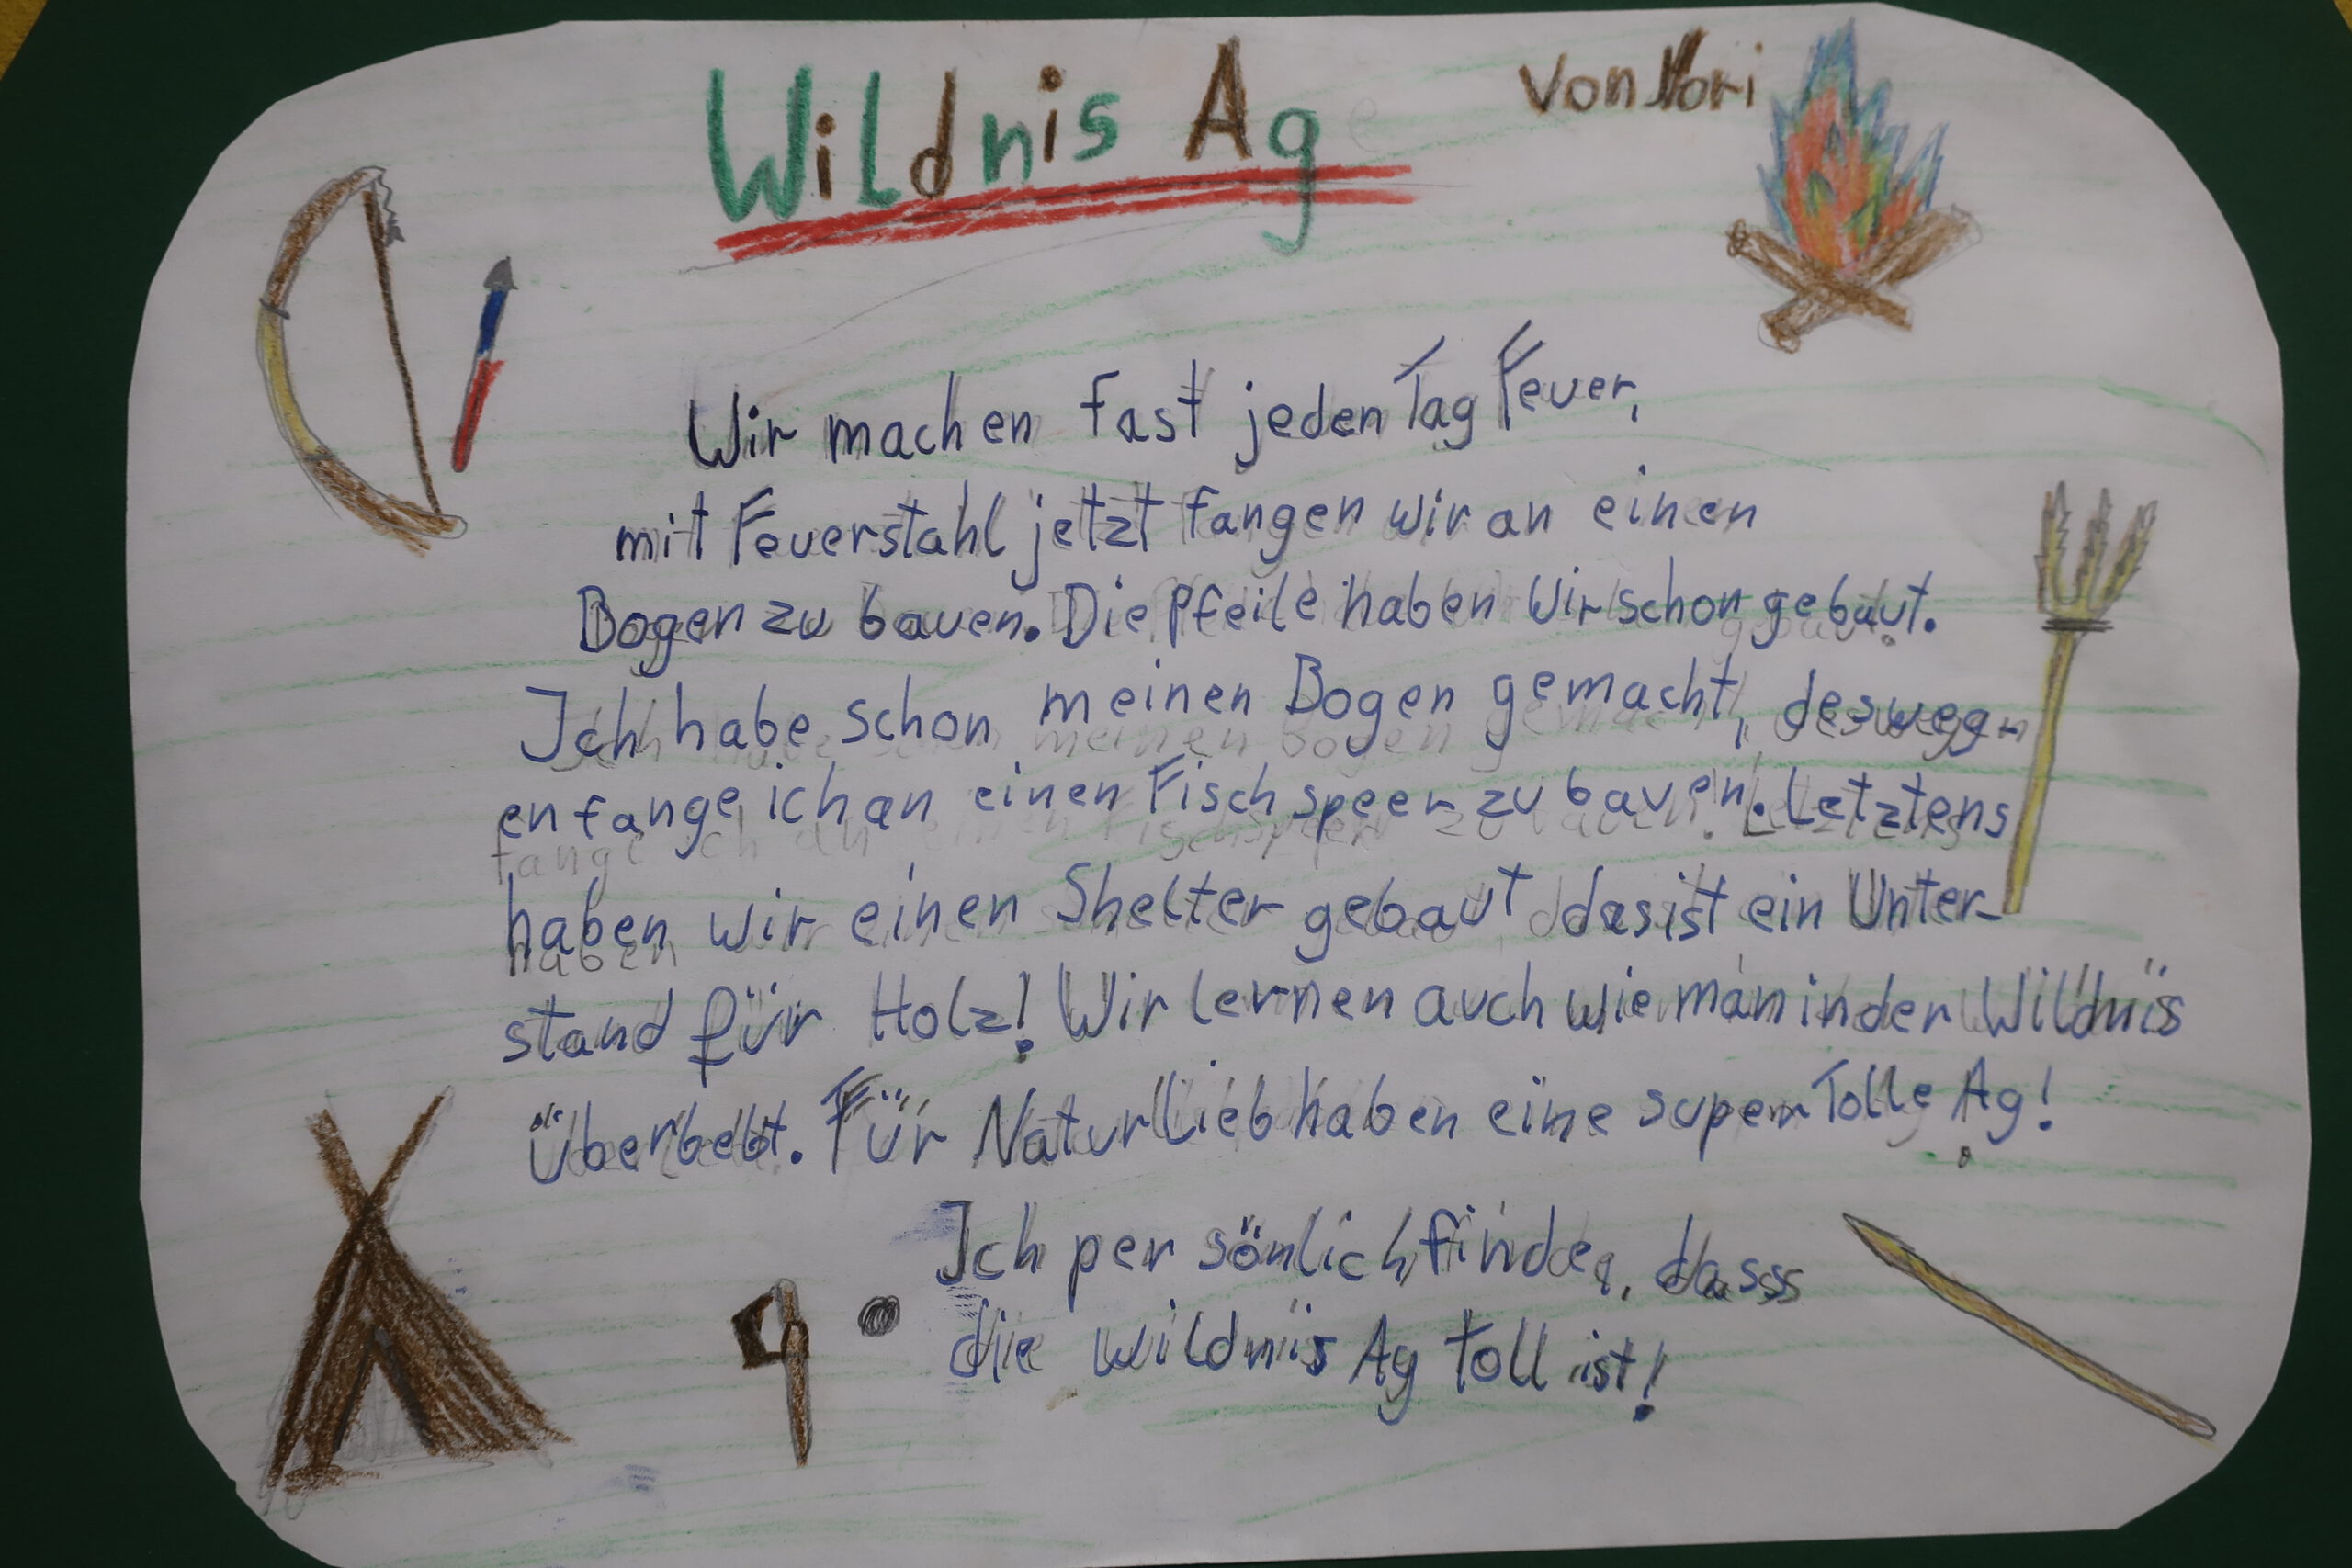 Wildnis Ag
Von Nori
Wir machen fast jeden Tag Feuer,
mit Feuerstahl jetzt fangen wir an einen
Bogen zu bauen. Die Pfeile haben wir schon gebaut.
Ich habe schon meinen Bogen gemacht, desweg-
en fange ich an einen Fischspeer zu bauen. Letztens
haben wir einen Shelter gebaut das ist ein Unter-
stand für Holz! Wir lernen auch wie man in der Wildnis
überbebt. Für Naturlieb haben eine super Tolle Ag!
Ich persönlich finde, dass
die Wildnis Ag toll ist!